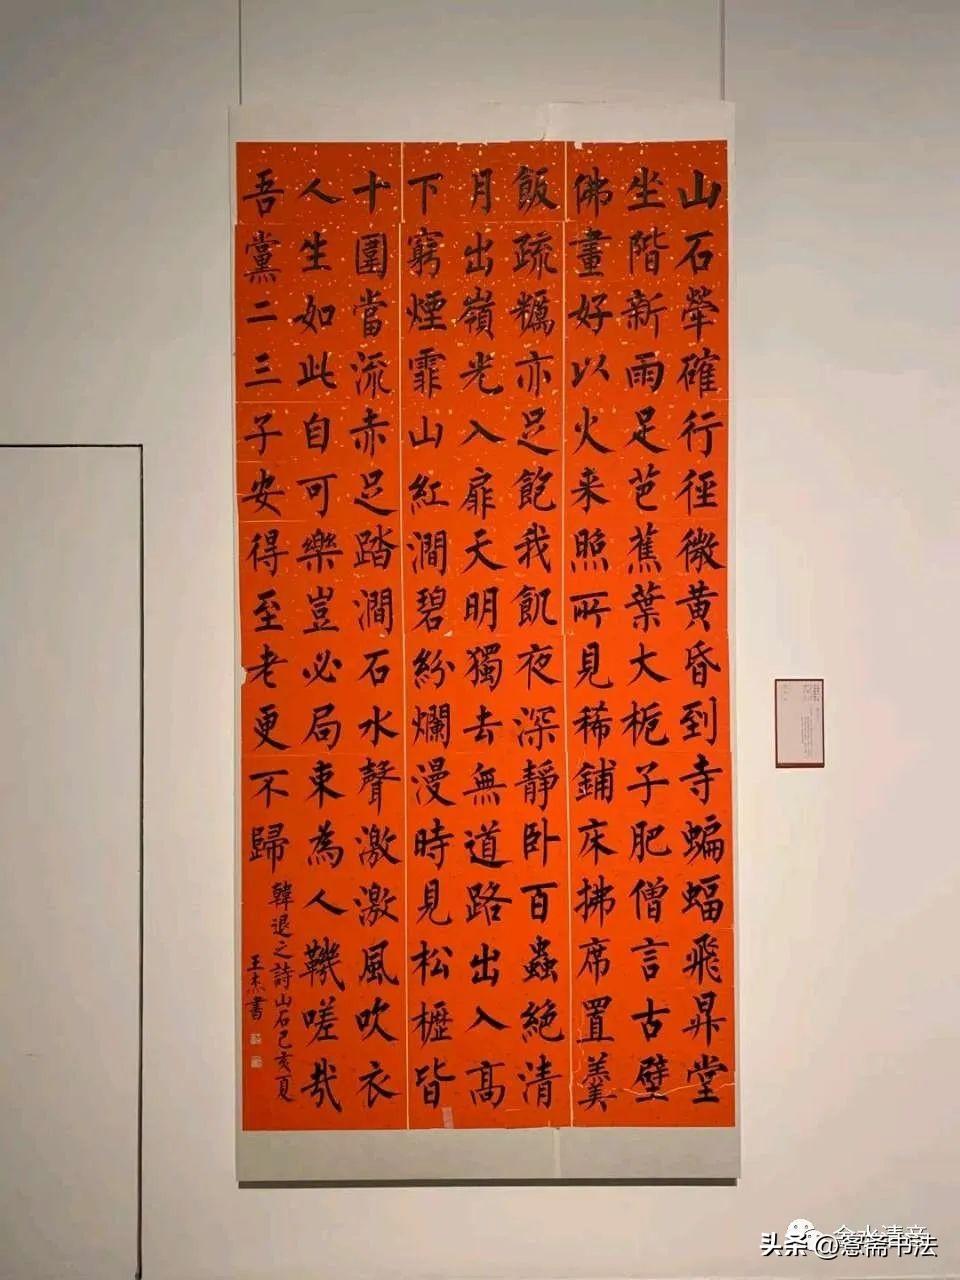 山石犖確行徑微黃昏到寺蝙蝠飛昇堂
坐階新雨足芭蕉葉大梔子肥僧言古壁
佛畫好以火来照所見稀鋪床拂席置羹
飯疏糲亦足飽我飢夜深靜卧百蟲絕清
月出嶺光入扉天明獨去無道路出入高
下窮煙霏山紅澗碧紛爛漫時見松櫪皆
十圍當流赤足踏澗石水聲激激風吹衣
人生如此自可樂豈必局束為人鞿嗟哉
吾黨二三子安得至老更不歸
韓退之詩山石己亥夏
王杰書
头条 @愙斋书法